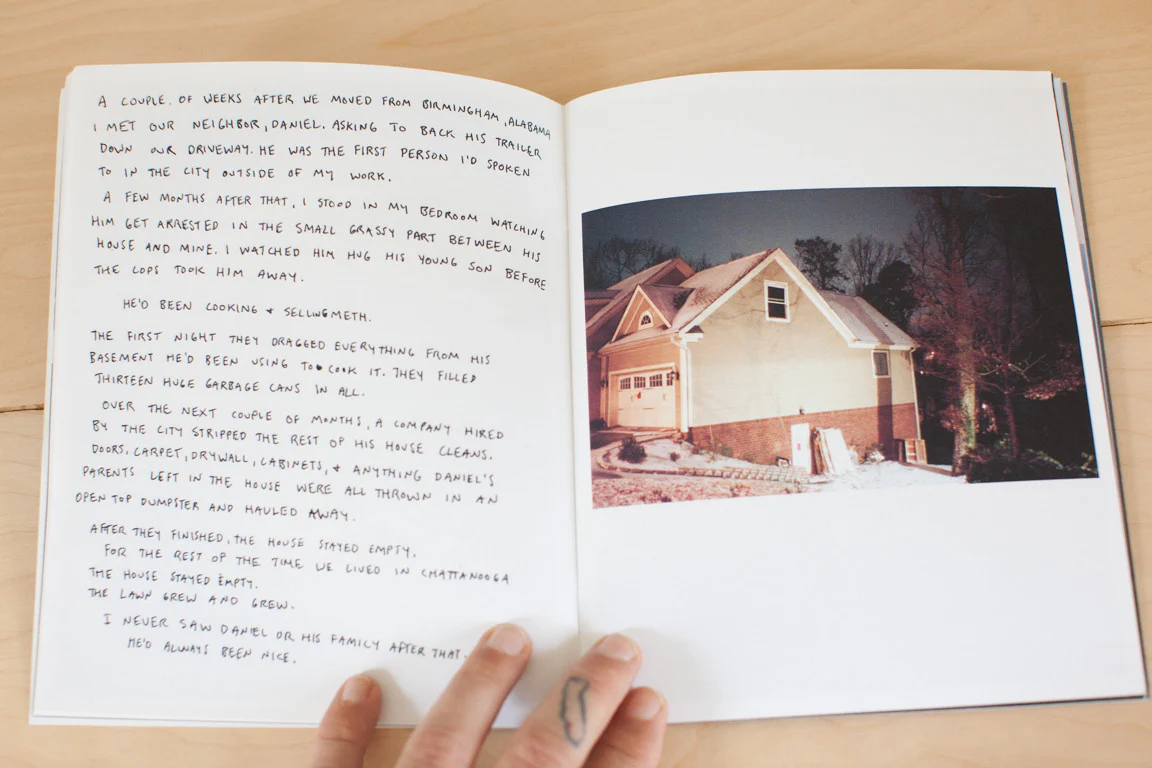 A COUPLE. OF WEEKS AFTER WE MOVED FROM BIRMINGHAM, ALABAMA
I MET OUR NEIGHBOR, DANIEL. ASKING TO BACK HIS TRAILER
DOWN OUR DRIVEWAY. HE WAS THE FIRST PERSON I'D SPOKEN
TO IN THE CITY OUTSIDE OF MY WORK.
A FEW MONTHS AFTER THAT, I STOOD IN MY BEDROOM WATCHING
HIM GET ARRESTED IN THE SMALL GRASSY PART BETWEEN HIS
HOUSE AND MINE. I WATCHED HIM HUG HIS YOUNG SON BEFORE
THE COPS TOOK HIM AWAY.
HE'D BEEN COOKING + SELLING METH.
THE FIRST NIGHT THEY DRAGGED EVERYTHING FROM HIS
BASEMENT HE'D BEEN USING TO COOK IT. THEY FILLED
THIRTEEN HUGE GARBAGE CANS IN ALL.
OVER THE NEXT COUPLE OF MONTHS, A COMPANY HIRED
BY THE CITY STRIPPED THE REST OF HIS HOUSE CLEANS.
DOORS, CARPET, DRYWALL, CABINETS, + ANYTHING DANIEL'S
PARENTS LEFT IN THE HOUSE WERE ALL THROWN IN AN
OPEN TOP DUMPSTER AND HAULED AWAY.
AFTER THEY FINISHED, THE HOUSE STAYED EMPTY.
FOR THE REST OF THE TIME WE LIVED IN CHATTANOOGA
THE HOUSE STAYED EMPTY.
THE LAWN GREW AND GREW.
I NEVER SAW DANIEL OR HIS FAMILY AFTER THAT.
HE'D ALWAYS BEEN NICE.